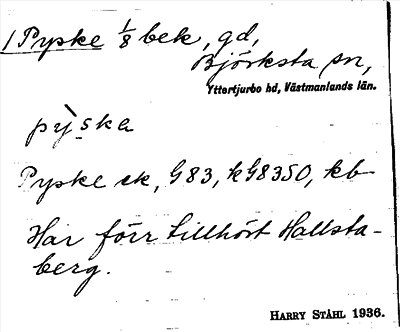 1 Pyske 1/8 bek, gd,
Björksta sn,
Yttertjurbo hd, Västmanlands län.
pỳska
Pyske sk, G83, kG8350, kb
Har förr tillhört Hallsta-
berg.
HARRY STÅHL 1936.